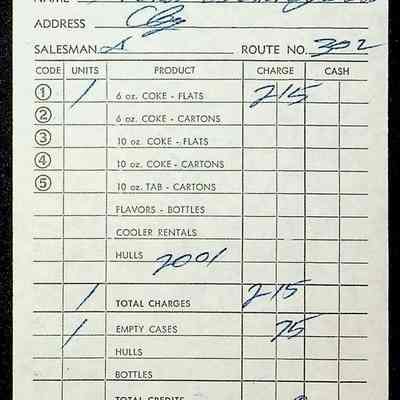 NAME
ADDRESS City
SALESMAN A ROUTE NO. 302
CODE UNITS PRODUCT CHARGE CASH
1 1 6 oz. COKE - FLATS 2 15
2 6 oz. COKE - CARTONS
3 10 oz. COKE - FLATS
4 10 oz. COKE - CARTONS
5 10 oz. TAB - CARTONS
FLAVORS - BOTTLES
COOLER RENTALS
HULLS 2001
1 TOTAL CHARGES 2 15
1 EMPTY CASES 75
HULLS
BOTTLES
TOTAL CREDITS